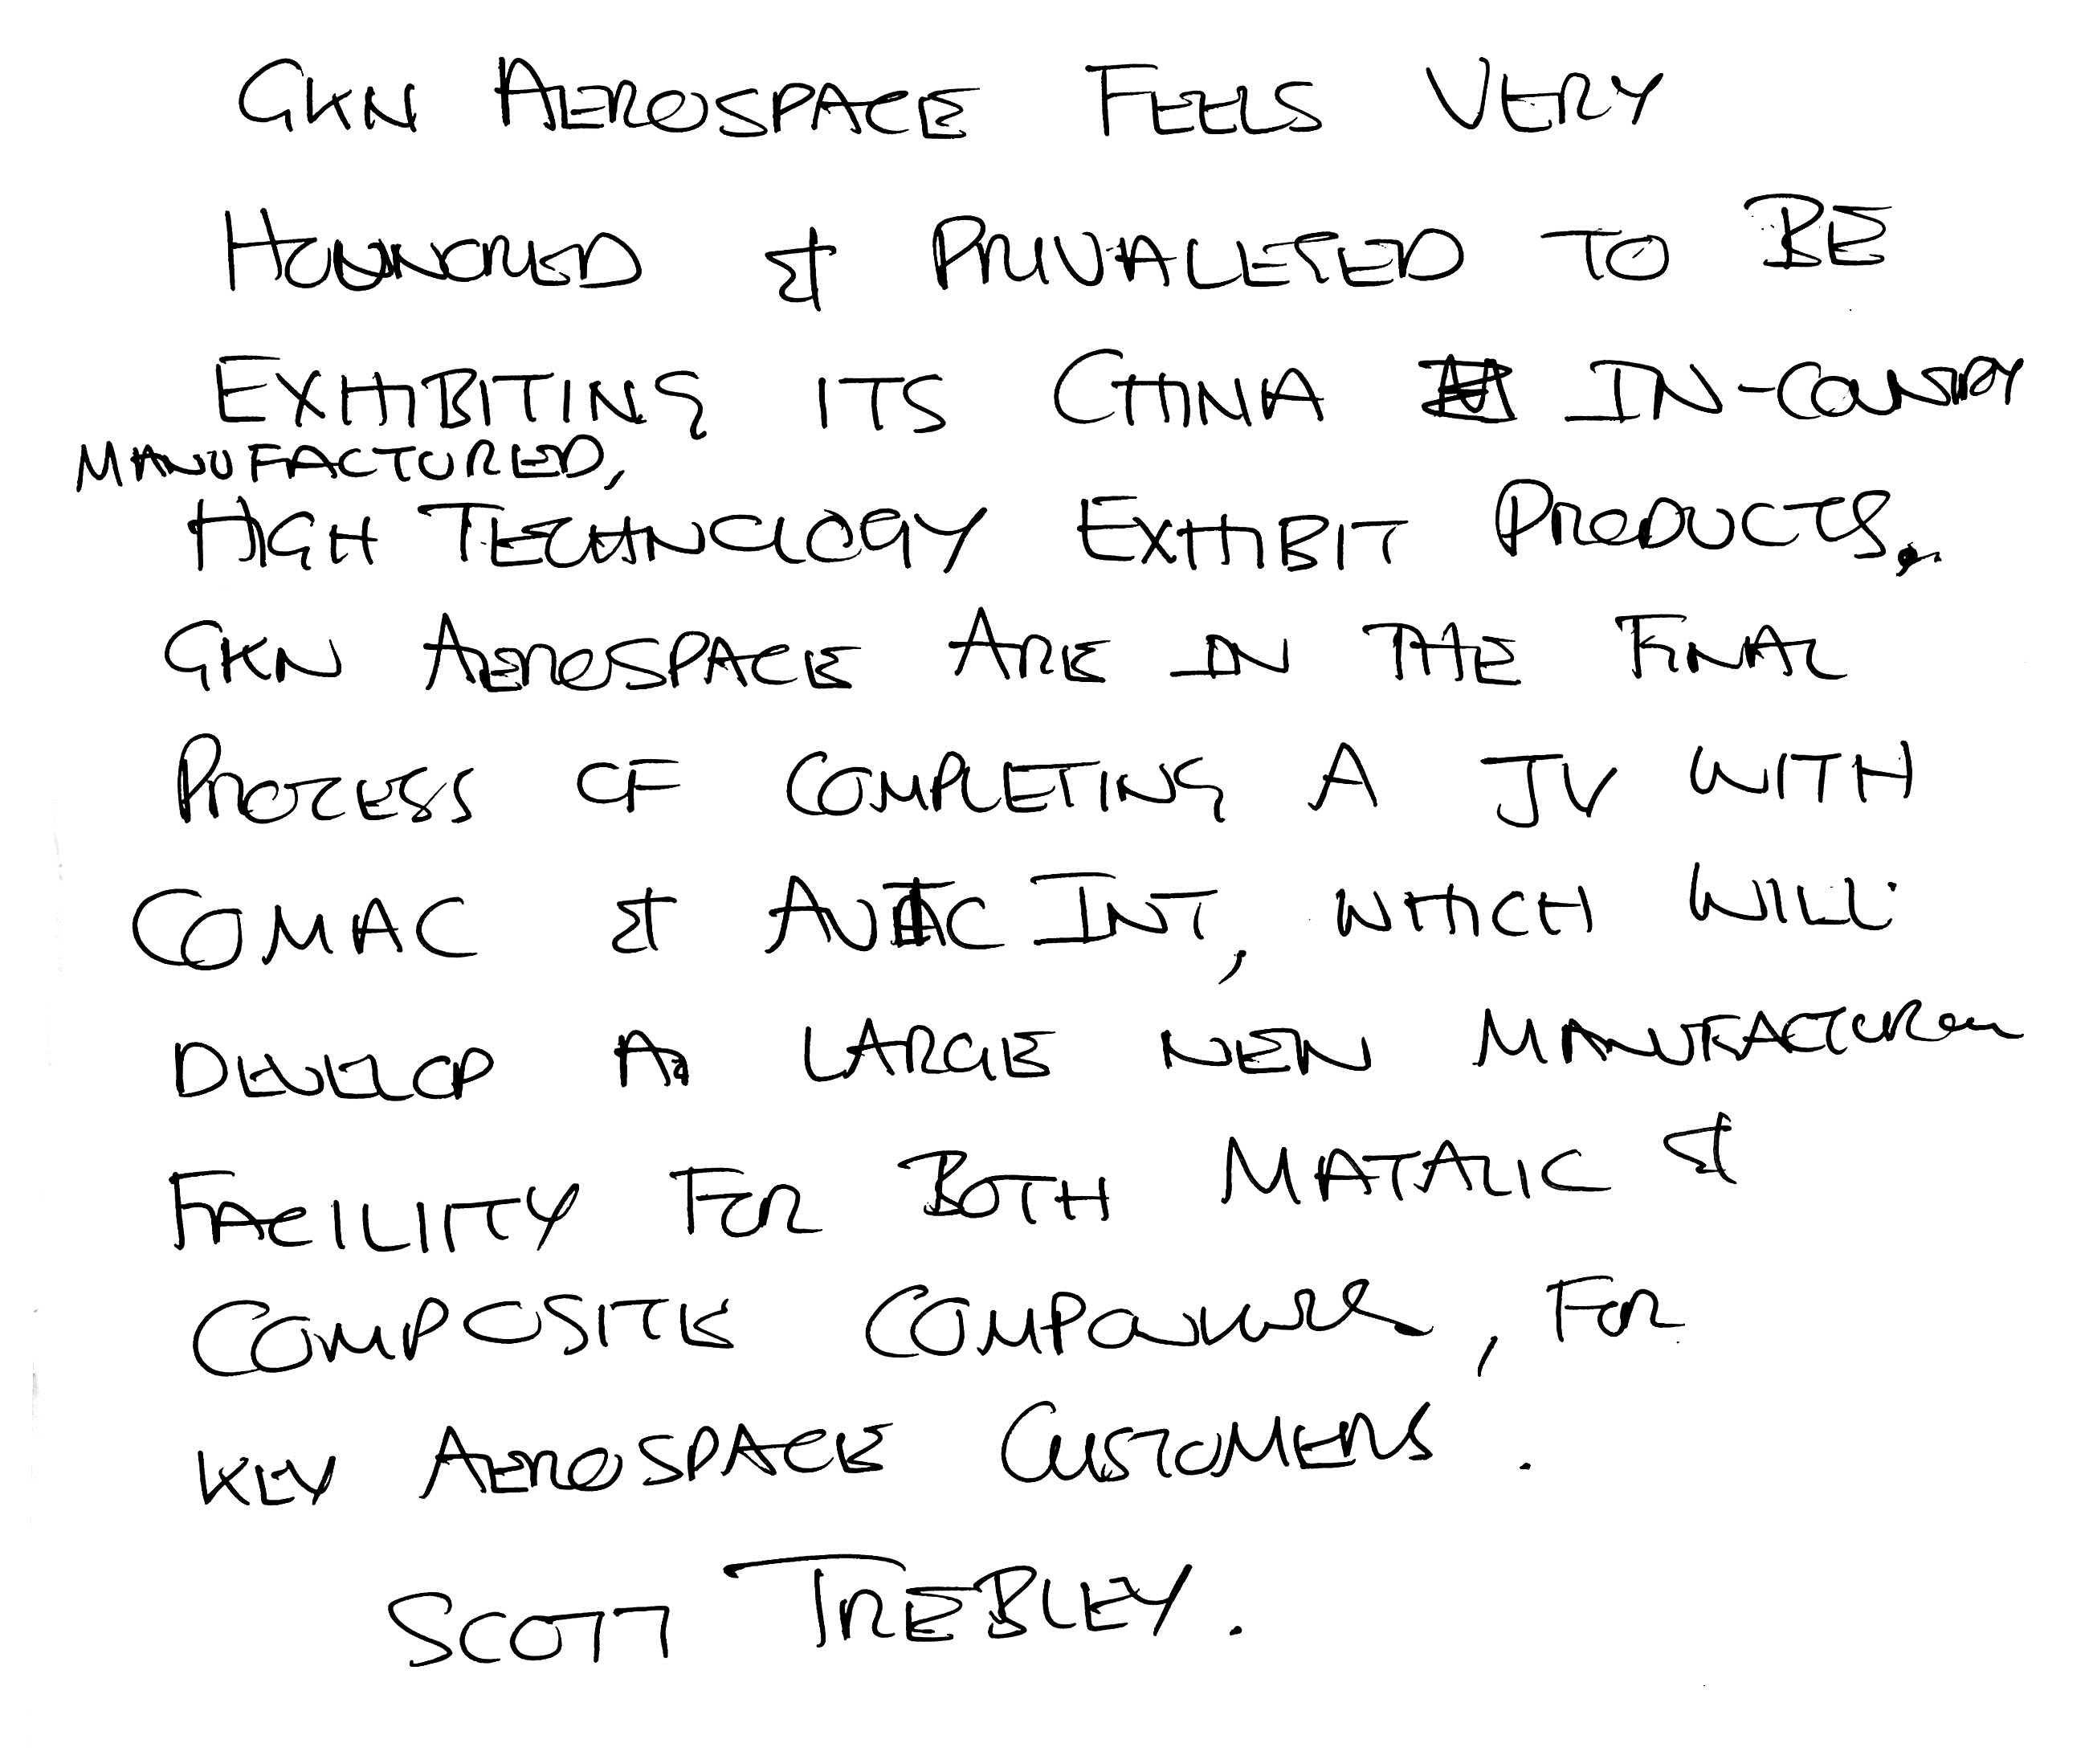 GKN AEROSPACE FEELS VERY
HOUNORED & PRIVALEGED TO BE
EXHIBITING ITS CHINA IN-COUNTRY
MANUFACTURED,
HIGH TECHNOLOGY EXHIBIT PRODUCTS.
GKN AEROSPACE ARE IN THE FINAL
PROCESS OF COMPLETING A JV WITH
COMAC & AVIC INT, WHICH WILL
DEVELOP A LARGE NEW
FACILITY FOR BOTH MATALIC &
COMPOSITE , FOR
KEY AEROSPACE CUSTOMERS.
SCOTT TREBLEY.